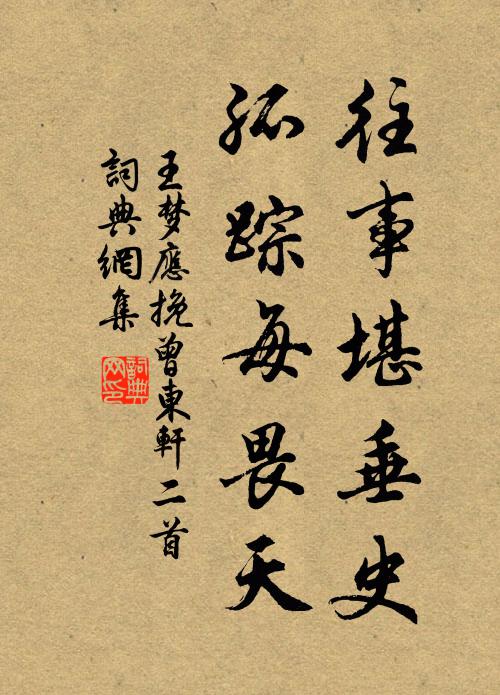 往事堪垂史
孤踪每畏天
王梦應挽曾東軒二首
詞典網集
詞典網印